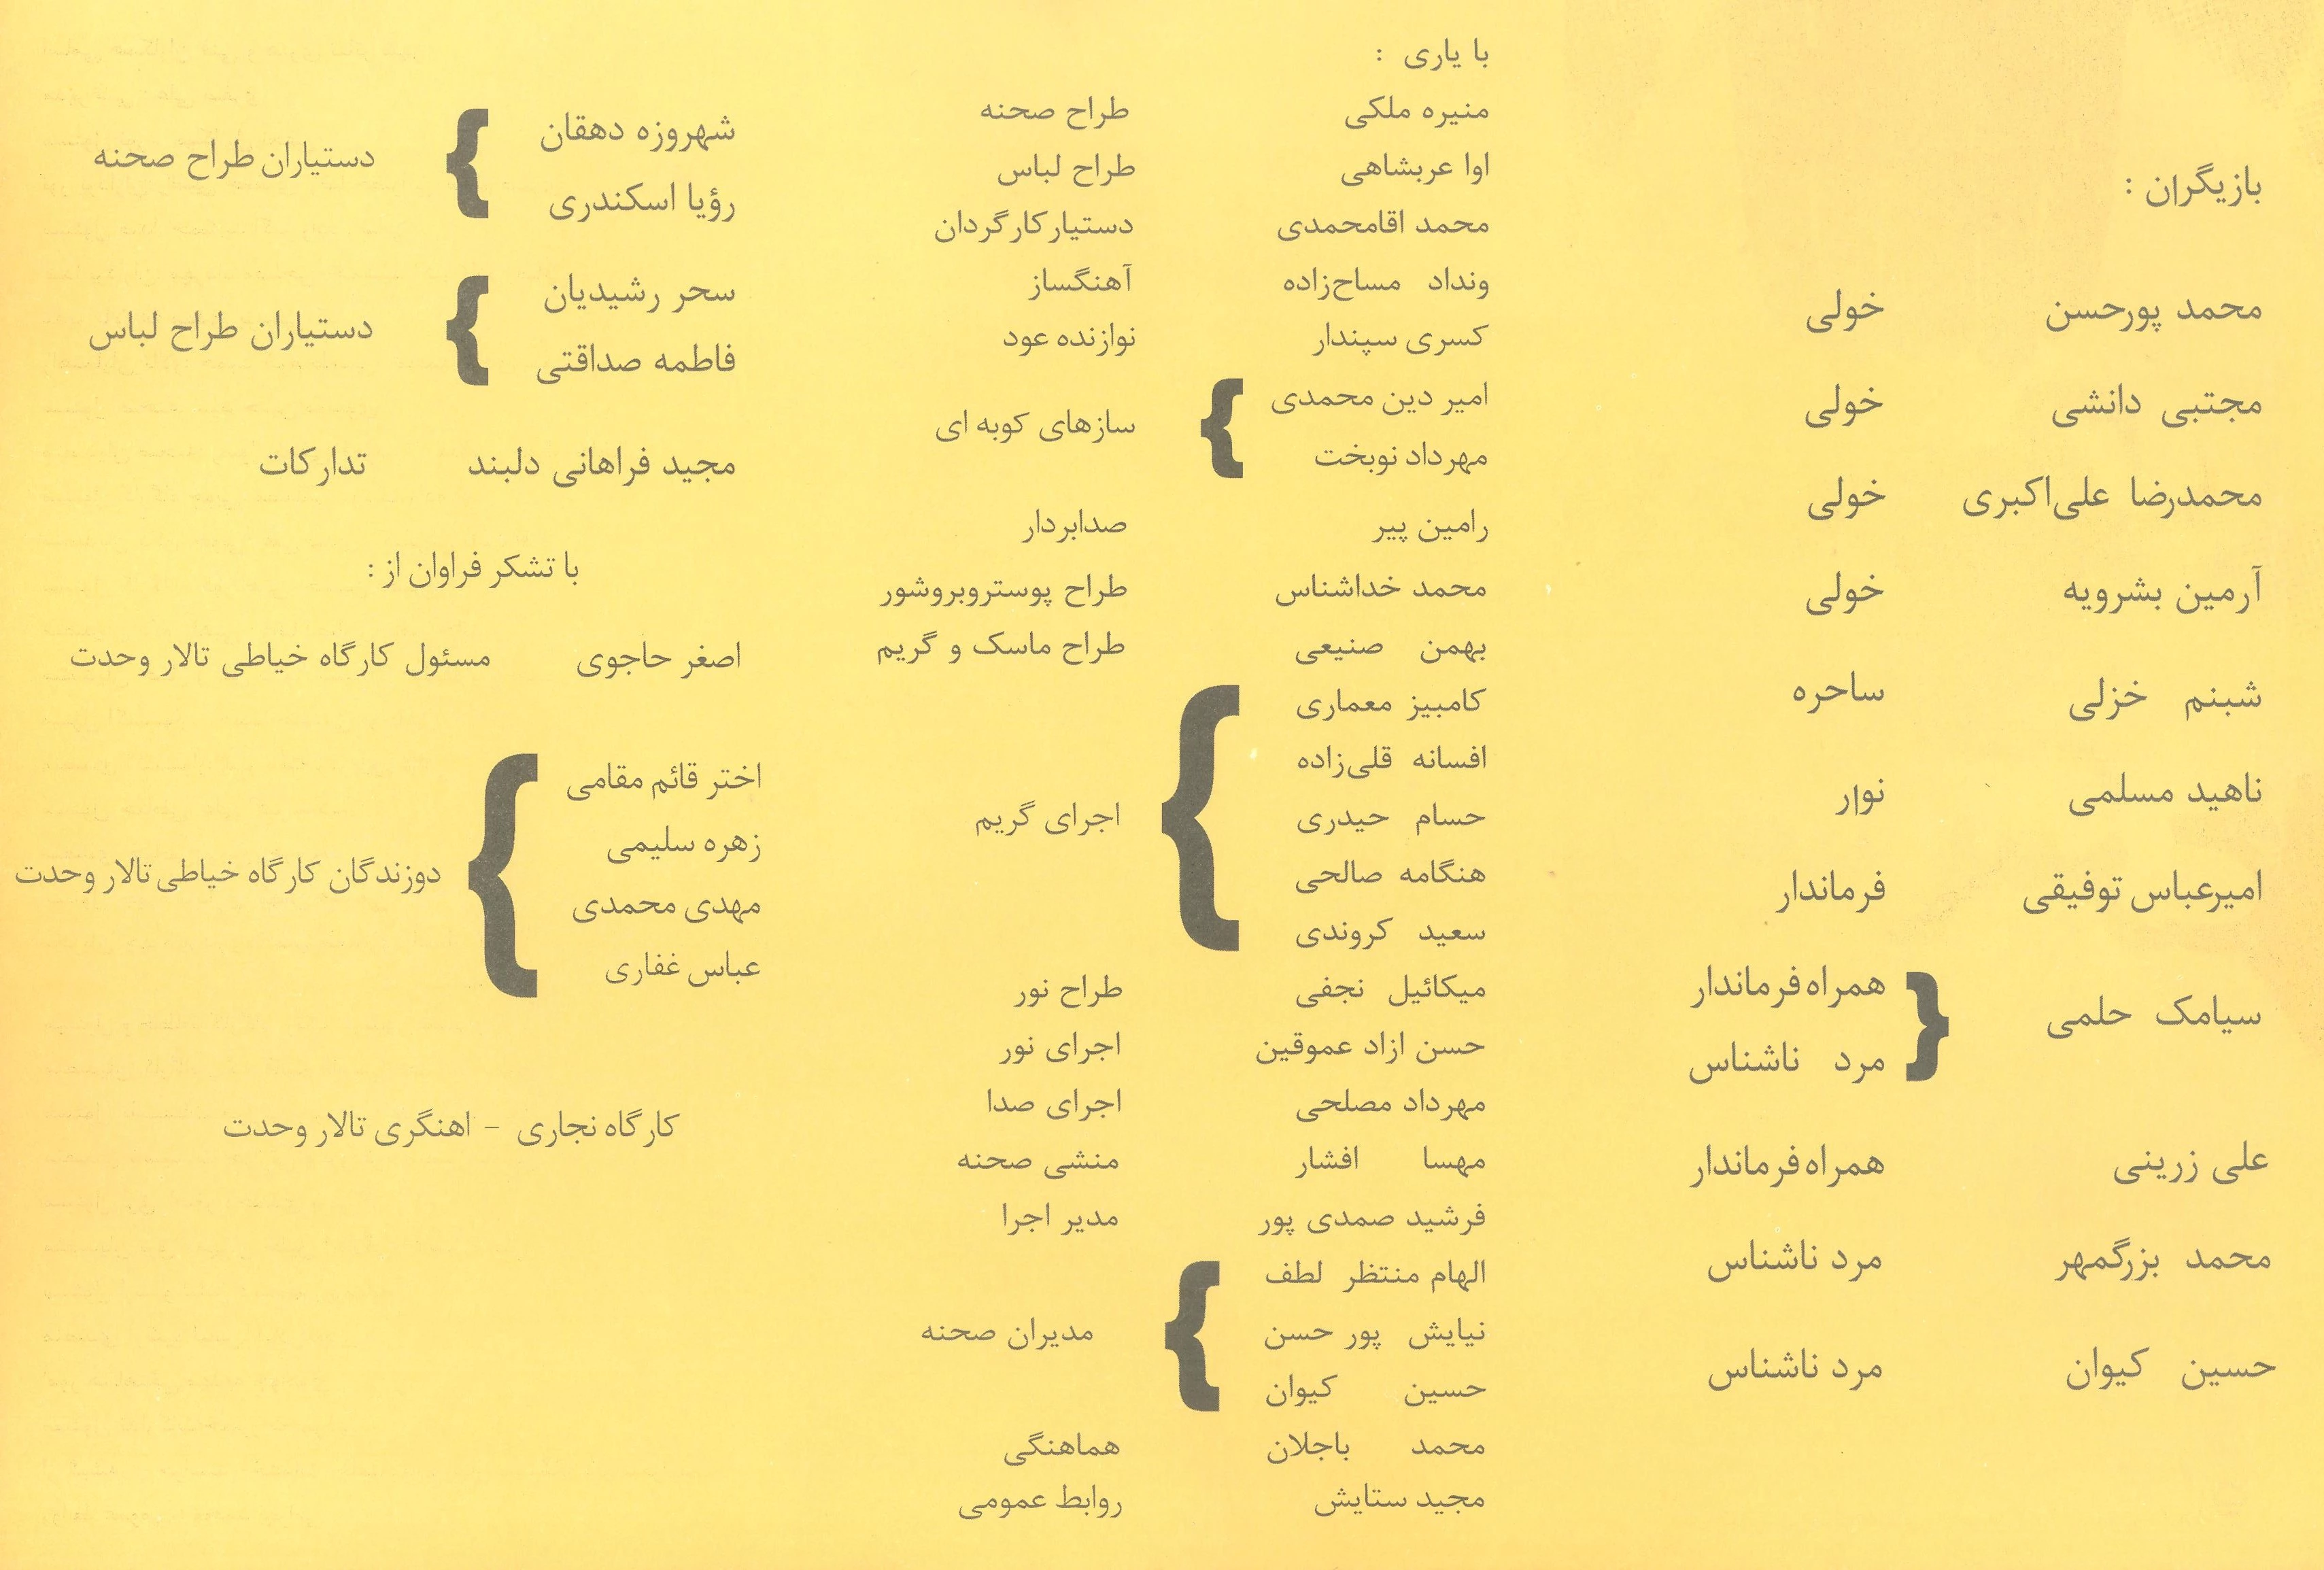 بازیگران :
محمد پورحسن خولی
مجتبی دانشی خولی
محمدرضا علی‌اکبری خولی
آرمین بشرویه خولی
شبنم خزلی ساحره
ناهید مسلمی نوار
امیرعباس توفیقی فرماندار
سیامک حلمی } همراه فرماندار
مرد ناشناس
علی زرینی همراه فرماندار
محمد بزرگمهر مرد ناشناس
حسین کیوان مرد ناشناس
با یاری :
منیره ملکی طراح صحنه
اوا عربشاهی طراح لباس
محمد اقامحمدی دستیار کارگردان
ونداد مساح‌زاده آهنگساز
کسری سپندار نوازنده عود
امیر دین محمدی
مهرداد نوبخت } سازهای کوبه ای
رامین پیر صدابردار
محمد خداشناس طراح پوستروبروشور
بهمن صنیعی طراح ماسک و گریم
کامبیز معماری
افسانه قلی‌زاده
حسام حیدری } اجرای گریم
هنگامه صالحی
سعید کروندی
میکائیل نجفی طراح نور
حسن ازاد عموقین اجرای نور
مهرداد مصلحی اجرای صدا
مهسا افشار منشی صحنه
فرشید صمدی پور مدیر اجرا
الهام منتظر لطف
نیایش پور حسن } مدیران صحنه
حسین کیوان
محمد باجلان هماهنگی
مجید ستایش روابط عمومی
شهروزه دهقان
رؤیا اسکندری } دستیاران طراح صحنه
سحر رشیدیان
فاطمه صداقتی } دستیاران طراح لباس
مجید فراهانی دلبند تدارکات
با تشکر فراوان از :
اصغر حاجوی مسئول کارگاه خیاطی تالار وحدت
اختر قائم مقامی
زهره سلیمی
مهدی محمدی } دوزندگان کارگاه خیاطی تالار وحدت
عباس غفاری
کارگاه نجاری - اهنگری تالار وحدت